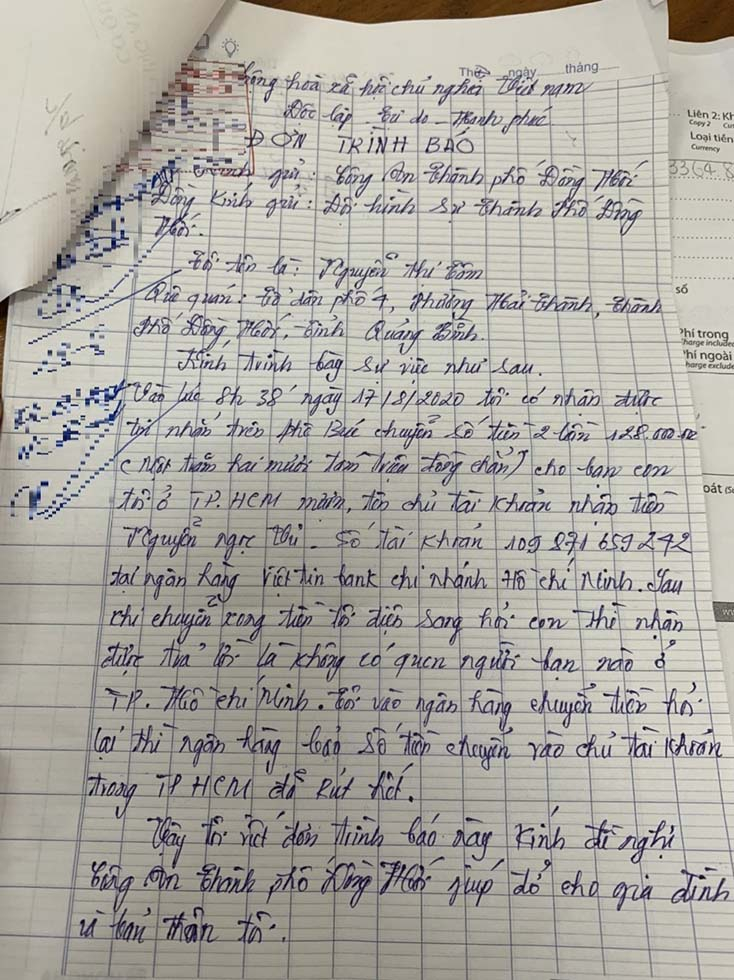 Thứ ngày tháng
Cộng hoà xã hội chủ nghĩa Việt nam
Độc lập - Tự do - Hạnh phúc
ĐƠN TRÌNH BÁO
Kính gửi: Công An Thành phố Đồng Hới
Đồng Kính gửi: Đội hình sự Thành Phố Đồng
Hới.
Tôi tên là: Nguyễn Thị Tâm
Quê quán: Tổ dân phố 4, Phường Hải Thành, Thành
Phố Đồng Hới, Tỉnh Quảng Bình.
Kính trình bày sự việc như sau.
Vào lúc 8h 38' ngày 17/8/2020 tôi có nhận được
tin nhắn trên phê Búc chuyển số tiền 2 lần 128.000.000
(một trăm hai mươi tám triệu đồng chẵn) cho bạn con
tôi ở TP.HCM mượn, tên chủ tài khoản nhận tiền
Nguyễn ngọc Thi. Số tài khoản 109 871 659 242
tại ngân hàng Việt tin bank chi nhánh Hồ chí Minh. Sau
khi chuyển xong tiền tôi điện sang hỏi con thì nhận
được trả lời là không có quen người bạn nào ở
TP. Hồ chí Minh. Tôi vào ngân hàng chuyển tiền hỏi
lại thì ngân hàng báo số tiền chuyển vào chủ tài khoản
trong TP HCM đã Rút hết.
Vậy tôi viết đơn trình báo này Kính đề nghị
Công An Thành phố Đồng Hới giúp đỡ cho gia đình
và bản thân tôi.
Liên 2: Kh
Copy 2 Cus
Loại tiền
Currency
3364.8
số
Phí trong
Charge include
Phí ngoài
Charge exclude
oát (Se